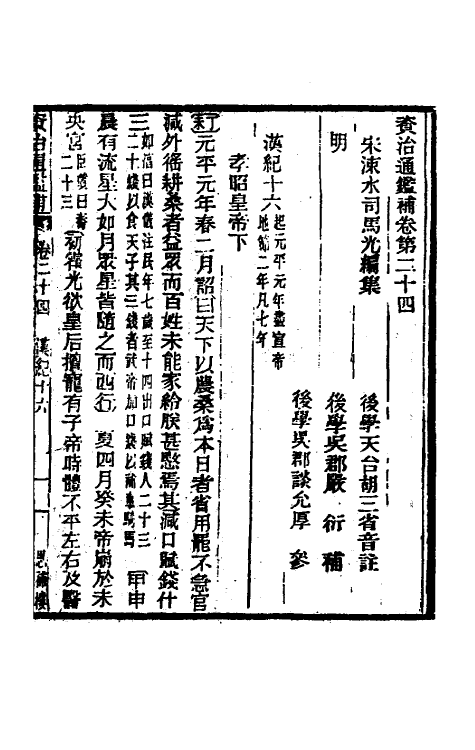 資治通鑑補卷第二十四
宋涑水司馬光編集
後學天台胡三省音註
明
後學吳郡嚴衍補
後學吳郡談允厚參
漢紀十六起元平元年盡宣帝
地節二年凡七年
孝昭皇帝下
元平元年春二月詔曰天下以農桑爲本日者省用罷不急官
減外徭耕桑者益眾而百姓未能家給朕甚愍焉其減口賦錢什
三如淳曰漢儀注民年七歲至十四出口賦錢人二十三
二十錢以食天子其三錢者武帝加口錢以補車騎馬
甲申
晨有流星大如月眾星皆隨之而西行 夏四月癸未帝崩於未
央宮臣瓚曰壽
二十三
初霍光欲皇后擅寵有子帝時體不平左右及醫
資治通鑑補
卷二十四
漢紀十六
一
思補樓